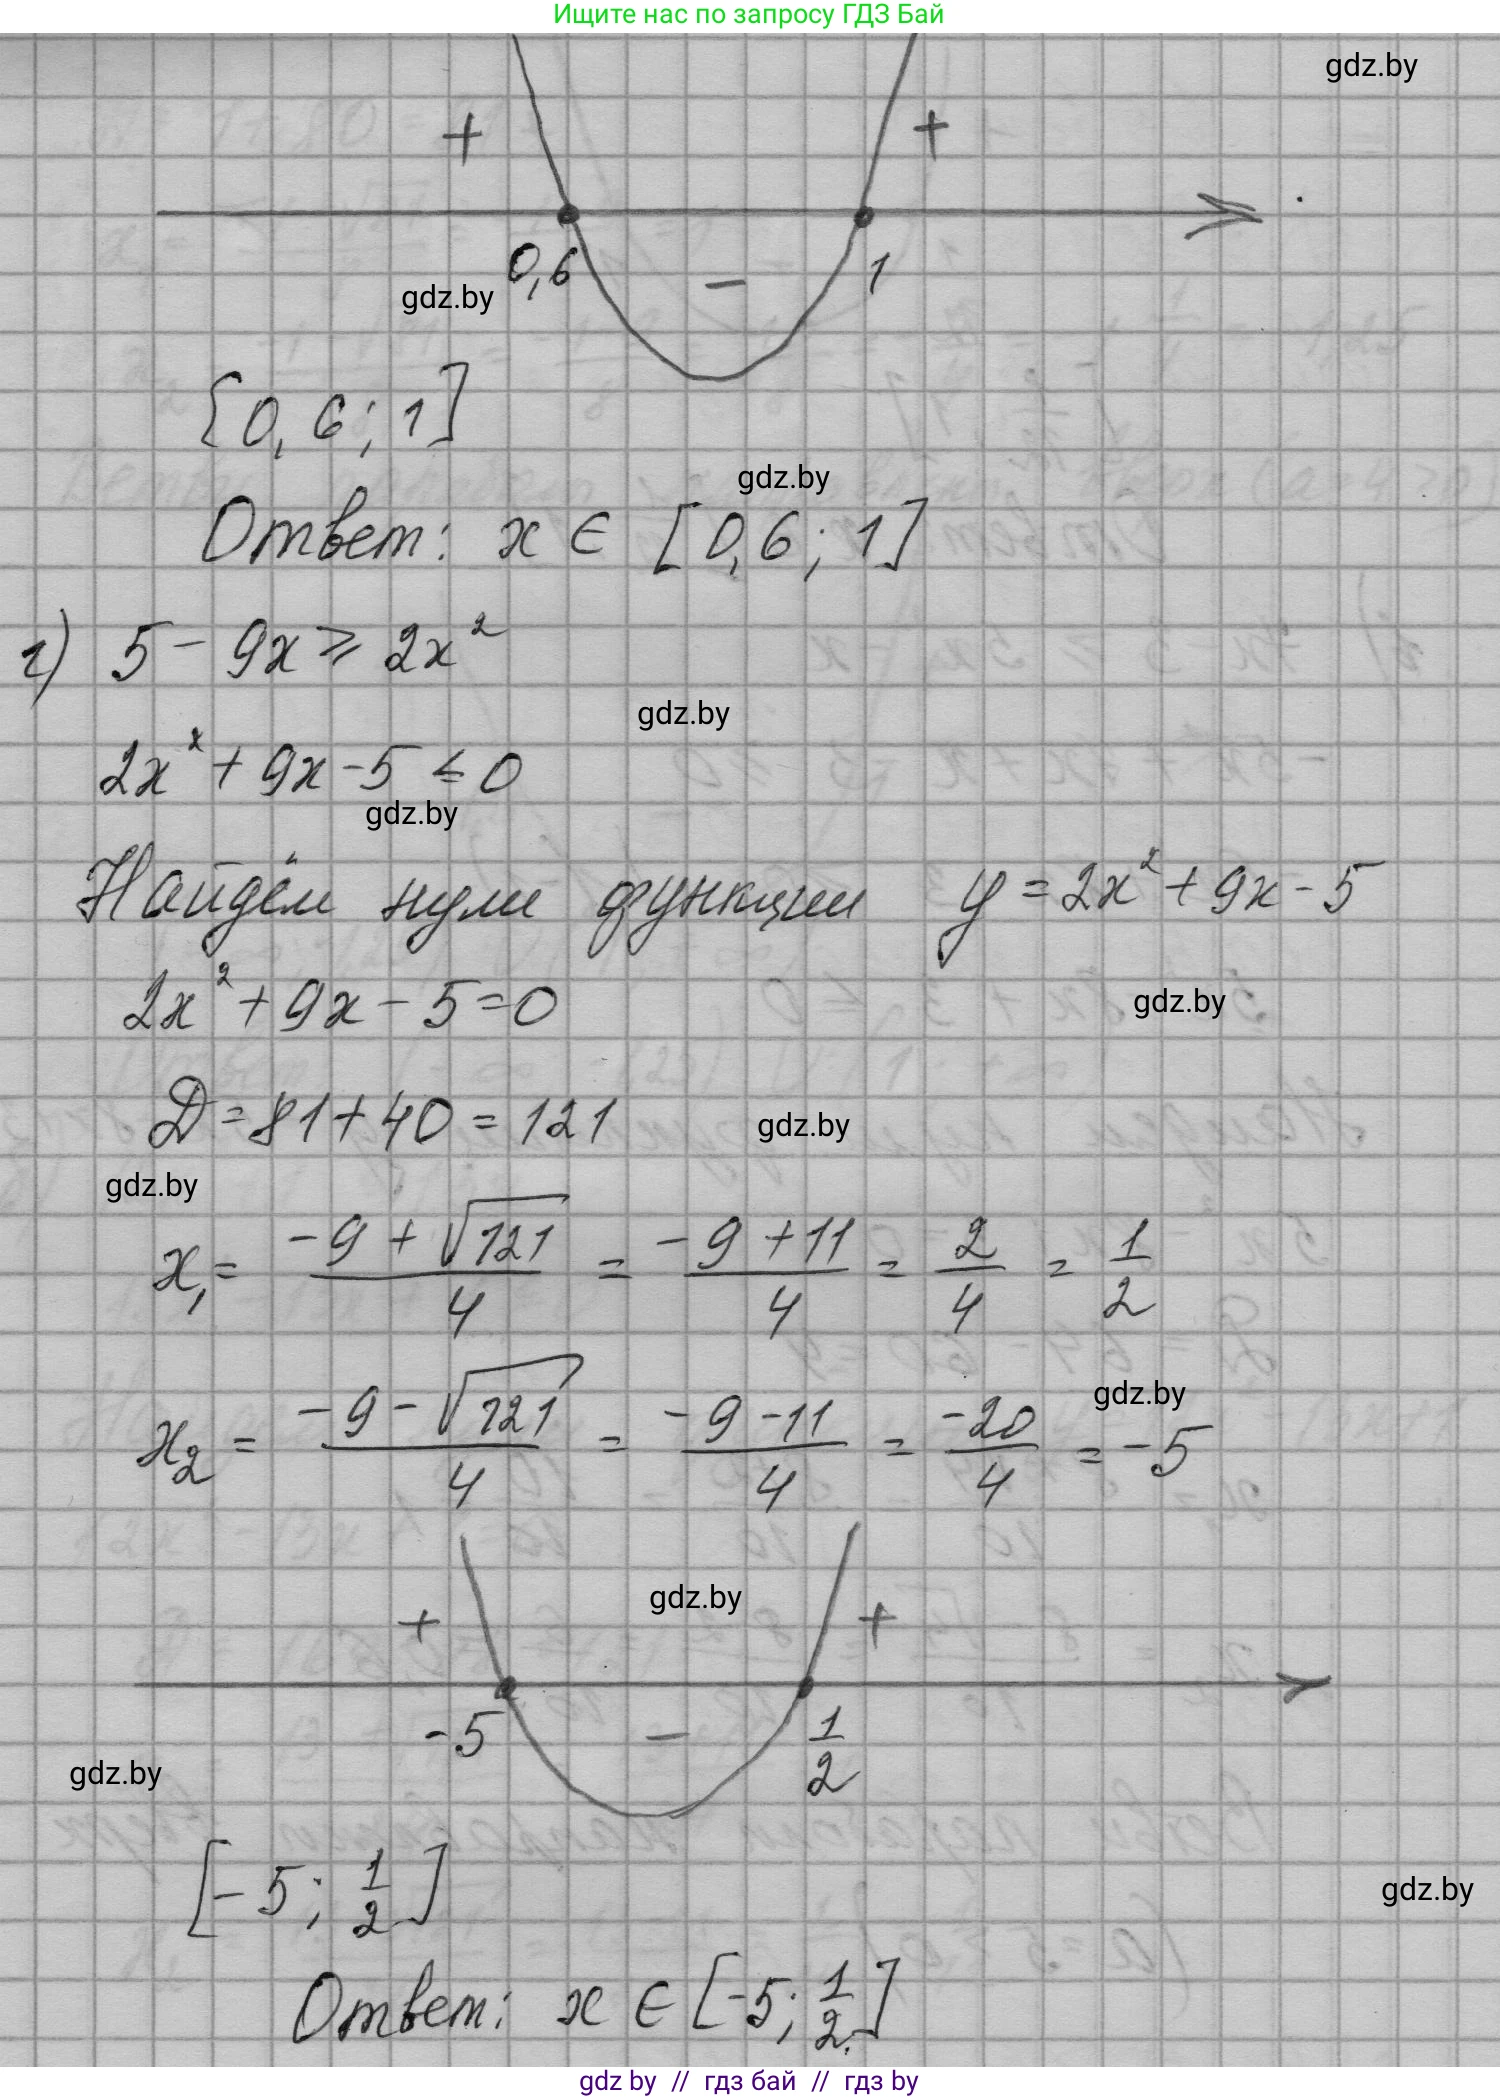 Ищите нас по запросу ГДЗ Бай
gdz.by
+ +
0,6 − 1
gdz.by
[0,6; 1]
gdz.by
Ответ: x ∈ [0,6; 1]
г) 5 − 9x ≥ 2x²
gdz.by
2x² + 9x − 5 ≤ 0
gdz.by
Найдём нули функции y = 2x² + 9x − 5
2x² + 9x − 5 = 0
gdz.by
D = 81 + 40 = 121
gdz.by
gdz.by
x₁ = (−9 + √121)/4 = (−9 + 11)/4 = 2/4 = 1/2
gdz.by
x₂ = (−9 − √121)/4 = (−9 − 11)/4 = −20/4 = −5
gdz.by
+ +
−5 − 1/2
gdz.by
[−5; 1/2]
gdz.by
Ответ: x ∈ [−5; 1/2]
gdz by // гдз бай // гдз by